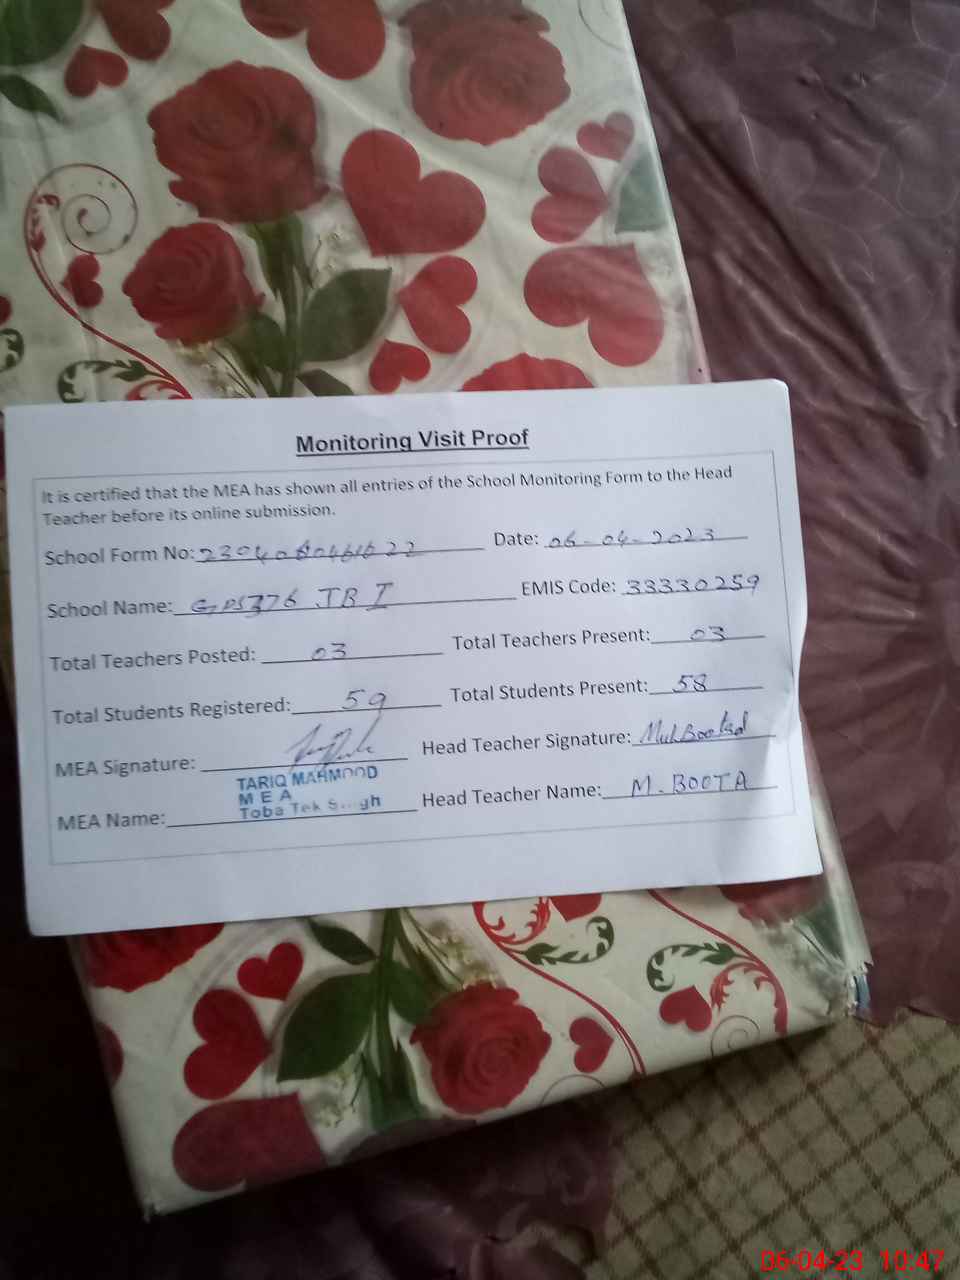 Monitoring Visit Proof
It is certified that the MEA has shown all entries of the School Monitoring Form to the Head
Teacher before its online submission.
School Form No: Date: 06-04-2023
School Name: GPS 376 JB I EMIS Code: 33330259
Total Teachers Posted: 03 Total Teachers Present: 03
Total Students Registered: 59 Total Students Present: 58
MEA Signature: Head Teacher Signature:
TARIQ MAHMOOD
M E A
Toba Tek
MEA Name: Head Teacher Name: M. BOOTA
06-04-23 10:47